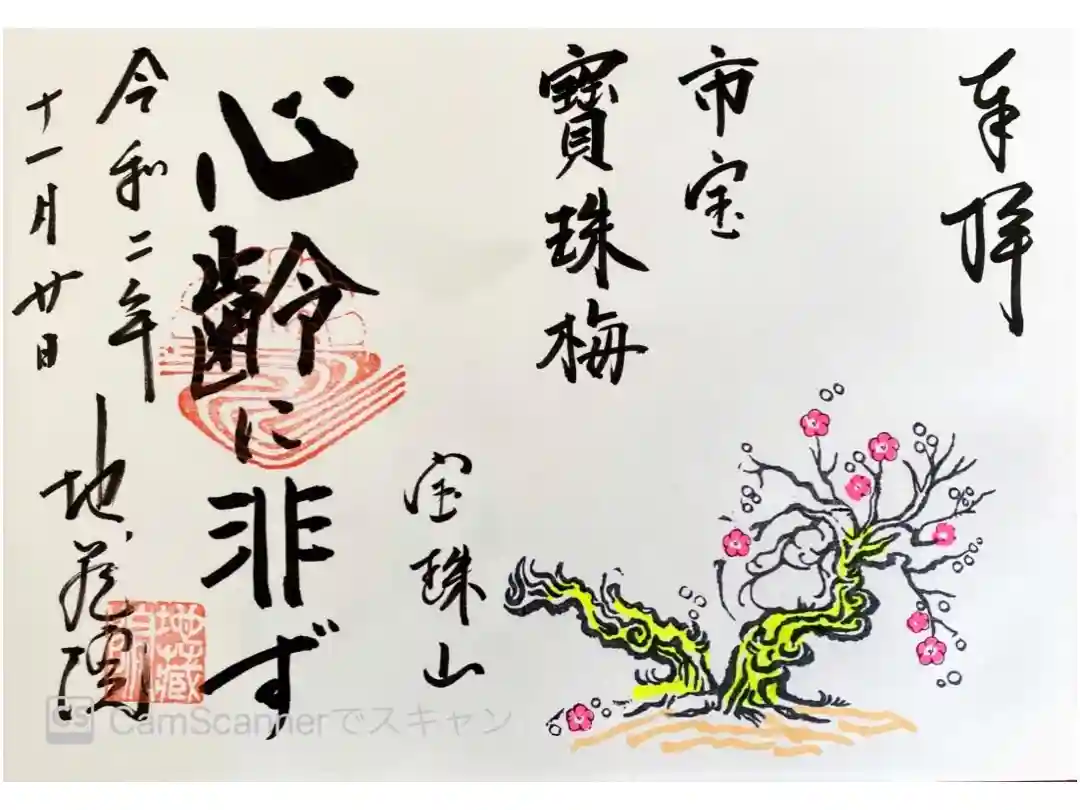 奉拝
市宝
寳珠梅
宝珠山
心齢に非ず
令和二年
十一月廿日
地蔵院
地蔵
CS CamScannerでスキャン